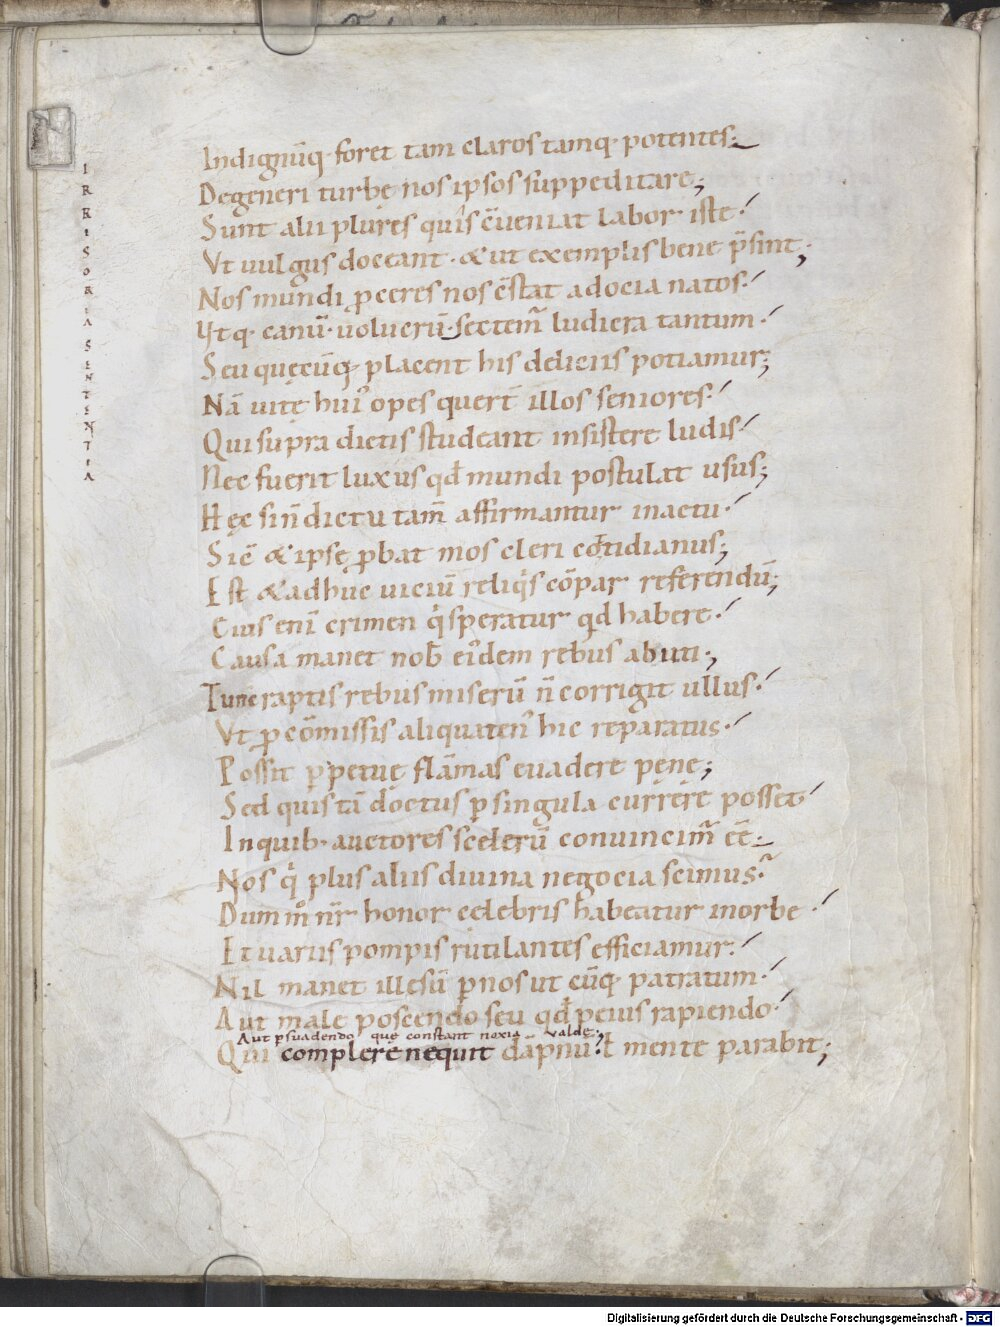 IRRISORIA SENTENTIA
Indignūq· foret tam claros tamq· potentes·
Degeneri turbę nos ipsos suppeditare;
Sunt alii plures quis c̄ueniat labor iste·
Vt uulgus doceant· & ut exemplis bene p̄sint;
Nos mundi ꝓceres nos c̄stat ad ocia natos·
Vtq· canū· uolucrū· sectem̄ ludicra tantum·
Seu quęcūq· placent his deliciis potiamur;
Nā uitę hui᾽ opes querer̄ illos seniores·
Qui supra dictis studeant insistere ludis·
Nec fuerit luxus qd̄ mundi postulat usus;
Hęc sin̄ dictu tam̄ affirmantur in actu·
Sic̄ & ipsę ꝓbat mos cleri cotidianus;
Est & adhuc uiciū reliq's cōpar referendū;
Cuius eni᷈ crimen q'speratur qd habere·
Causa manet nob̄ eidem rebus abuti·;
Tunc raptis rebus miserū n̄ corrigit ullus·
Vt ꝓ cōmissis aliquaten᾽ hic reparatus·
Possit ꝑpetuę flāmas euadere penę;
Sed quis tā doctus ꝑ singula currere posset
In quib· auctores scelerū conuincim̄ ēē·
Nos q' plus aliis diuina negocia scimus·
Dum m̊ nr̄ honor celebris habeatur in orbe·
Et uariis pompis rutilantes efficiamur·
Nil manet illęsū ꝑ nos ut cūq· patratum·
Aut male poscendo seu qd̄ peius rapiendo·
Aut ꝑsuadendo que constant noxia valde·
Qui complere nequit dāpnū ł mente parabit;
Digitalisierung gefördert durch die Deutsche Forschungsgemeinschaft - DFG